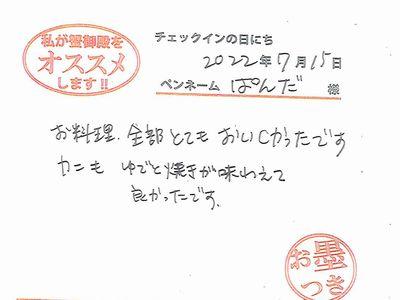 私が蟹御殿を
オススメ
します!!
チェックインの日にち
2022年7月15日
ペンネーム ぱんだ 様
お料理、全部とてもおいしかったです
カニも ゆでと焼きが味わえて
良かったです。
お墨
つき